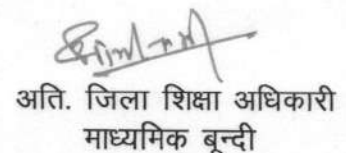 अति. जिला शिक्षा अधिकारी
माध्यमिक बून्दी